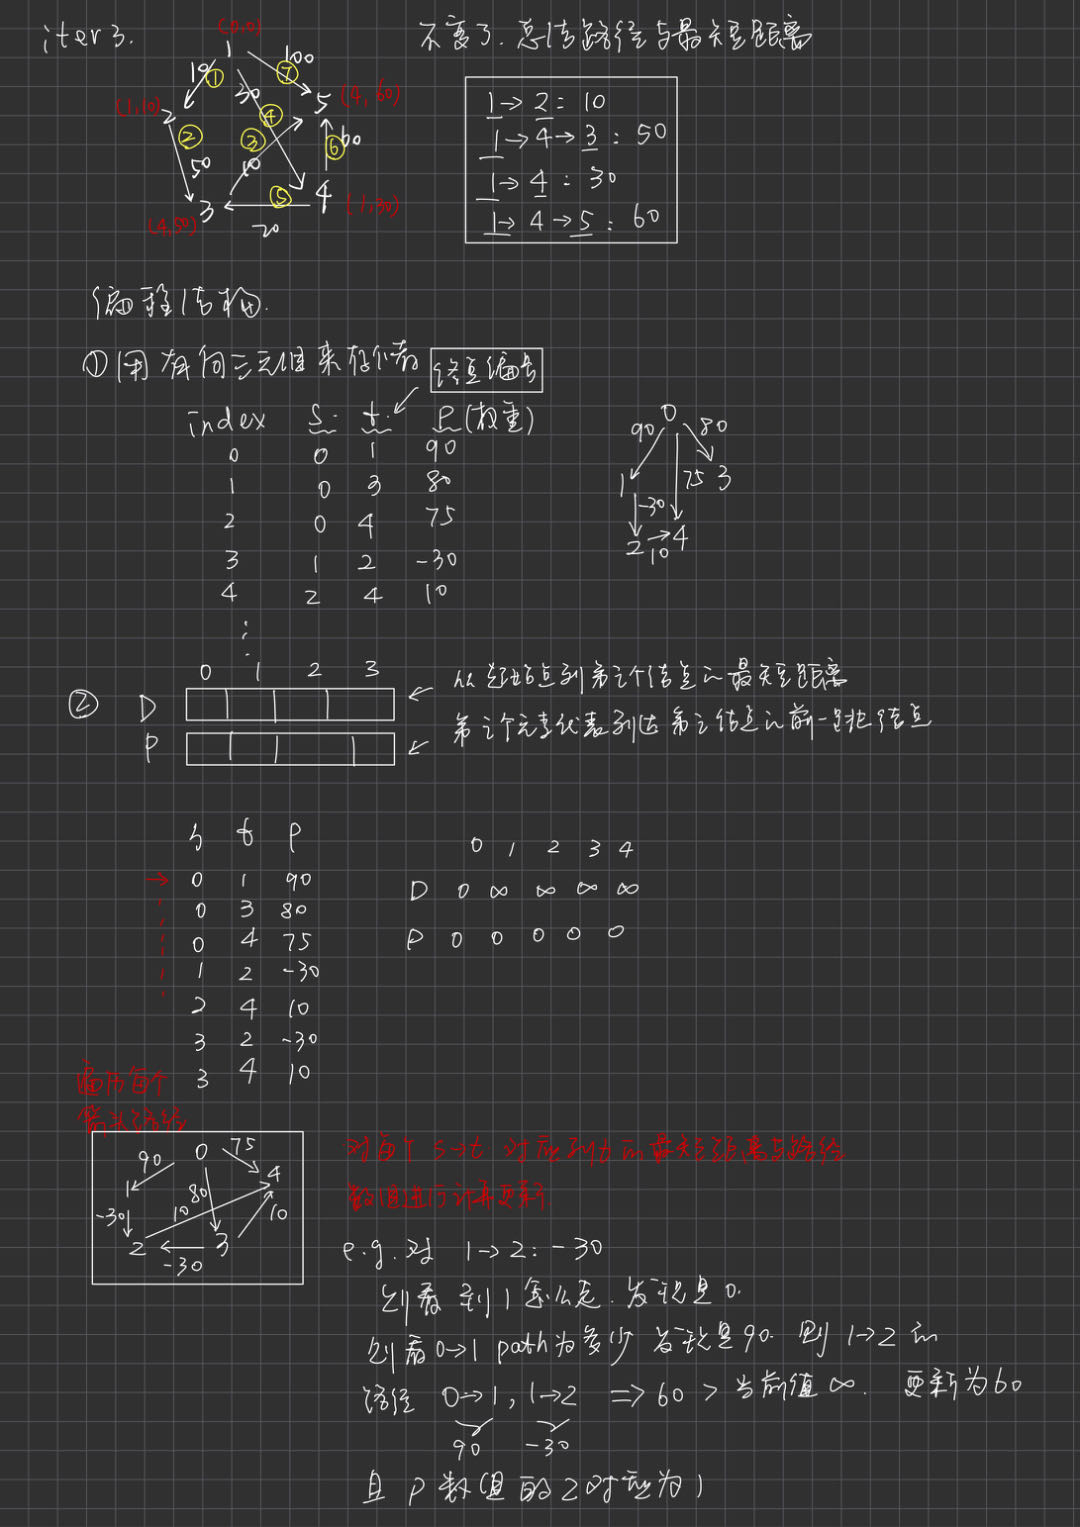 iter 3.
不变了. 总结路径与最短距离
(0,0)
1
10 ① 100 ⑦
30 ④
(1,10) 2
5 (4,60)
② 50
③ 10
⑥ 60
3 (4,50)
⑤ 20
4 (1,30)
1→2: 10
1→4→3: 50
1→4: 30
1→4→5: 60
编程结构.
①用有向三元组来存个者 终点编号
index S. t. P(权重)
0 0 1 90
1 0 3 80
2 0 4 75
3 1 2 -30
4 2 4 10
⋮
0
90 80
1 75 3
-30
2→4
10
0 1 2 3
② D
从起始点到第i个结点的最短距离
P
第i个元素代表到达第i结点的前一结点
s t P
0 1 90
0 3 80
0 4 75
1 2 -30
2 4 10
3 2 -30
3 4 10
0 1 2 3 4
D 0 ∞ ∞ ∞ ∞
P 0 0 0 0 0
遍历每个
箭头路径
0 75
90 4
1 80
-30 10 10
2 3
-30
对每个 s→t 对应到t的最短距离与路径
数值进行计算更新.
e.g. 对 1→2: -30
则看到1怎么走. 发现是0.
则看0→1 path为多少 发现是90. 则 1→2 的
路径 0→1, 1→2 => 60 > 当前值 ∞. 更新为60
90 -30
且 P数组的2对应为1